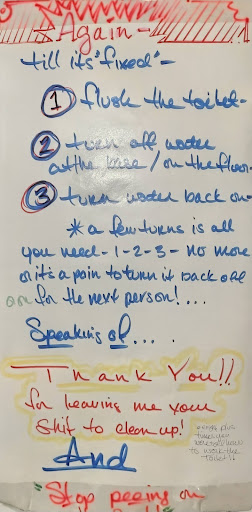 * Again -
till its "fixed" -
1 flush the toilet -
2 turn off water
at the base / on the floor -
3 turn water back on -
* a few turns is all
you need - 1 - 2 - 3 - no more
or it's a pain to turn it back off
or on for the next person! ...
Speaking of ....
Thank You!!
for leaving me your
shit to clean up!
And
to work the
toilet!!
"Stop peeing on